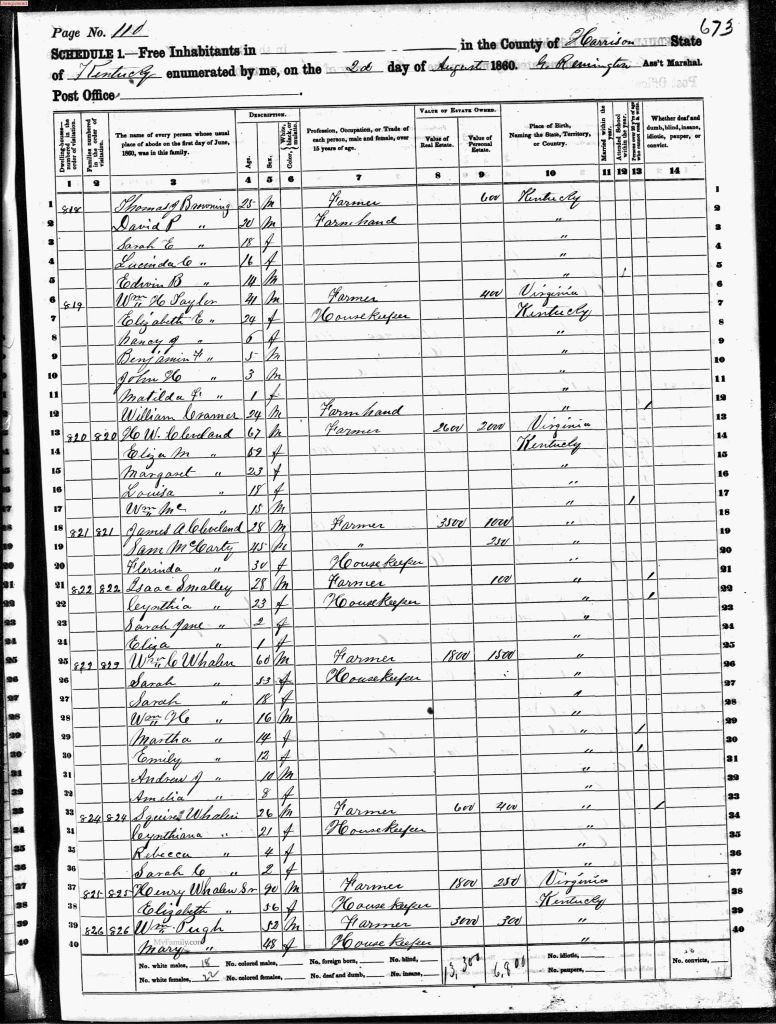 Page No. 110
673
SCHEDULE 1.—Free Inhabitants in in the County of Harrison State
of Kentucky enumerated by me, on the 2d day of August 1860. G. Remington Ass't Marshal.
Post Office
DESCRIPTION. VALUE OF ESTATE OWNED.
Dwelling-houses—numbered in the order of visitation. Families numbered in the order of visitation. The name of every person whose usual place of abode on the first day of June, 1860, was in this family. Age. Sex. Color, White, black, or mulatto. Profession, Occupation, or Trade of each person, male and female, over 15 years of age. Value of Real Estate. Value of Personal Estate. Place of Birth, Naming the State, Territory, or Country. Married within the year. Attended School within the year. Persons over 20 y'rs of age who cannot read & write. Whether deaf and dumb, blind, insane, idiotic, pauper, or convict.
1 2 3 4 5 6 7 8 9 10 11 12 13 14
1 818 Thomas J Browning 25 m Farmer 600 Kentucky 1
2 David P " 20 m Farmhand " 2
3 Sarah E " 18 f " 3
4 Lucinda C " 16 f " 4
5 Edwin B " 14 m " / 5
6 819 Wm H Taylor 41 m Farmer 400 Virginia 6
7 Elizabeth E " 24 f Housekeeper Kentucky 7
8 Nancy J " 6 f " 8
9 Benjamin F " 5 m " 9
10 John H " 3 m " 10
11 Matilda F " 1 f " 11
12 William Cramer 24 m Farmhand " / 12
13 820 820 H W. Cleveland 67 m Farmer 2600 2000 Virginia 13
14 Eliza M " 59 f Kentucky 14
15 Margaret " 23 f " 15
16 Louisa " 18 f " 16
17 Wm Mc " 15 m " / 17
18 821 821 James A Cleveland 28 m Farmer 3500 1000 " 18
19 Sam McCarty 45 m " 250 " 19
20 Florinda " 30 f Housekeeper " 20
21 822 822 Isaac Smalley 28 m Farmer 100 " / 21
22 Cynthia " 23 f Housekeeper " / 22
23 Sarah Jane " 2 f " 23
24 Eliza " 1 f " 24
25 823 823 Wm C Whalen 60 m Farmer 1800 1500 " 25
26 Sarah " 53 f Housekeeper " 26
27 Sarah " 18 f " 27
28 Wm H " 16 m " 28
29 Martha " 14 f " / 29
30 Emily " 12 f " / 30
31 Andrew J " 10 m " 31
32 Amelia " 8 f " 32
33 824 824 Squire Whalen 26 m Farmer 600 400 " / 33
34 Cynthiana " 21 f Housekeeper " 34
35 Rebecca " 4 f " 35
36 Sarah C " 2 f " 36
37 825 825 Henry Whalen Sr 90 m Farmer 1800 250 Virginia 37
38 Elizabeth " 56 f Housekeeper Kentucky 38
39 826 826 Wm Pugh 52 m Farmer 3000 300 " 39
40 Mary " 48 f Housekeeper " 40
MyFamily.com
No. white males, 18 No. colored males, No. foreign born, No. blind, 13,300 6,800 No. idiotic, No. convicts,
No. white females, 22 No. colored females, No. deaf and dumb, No. insane, No. paupers,